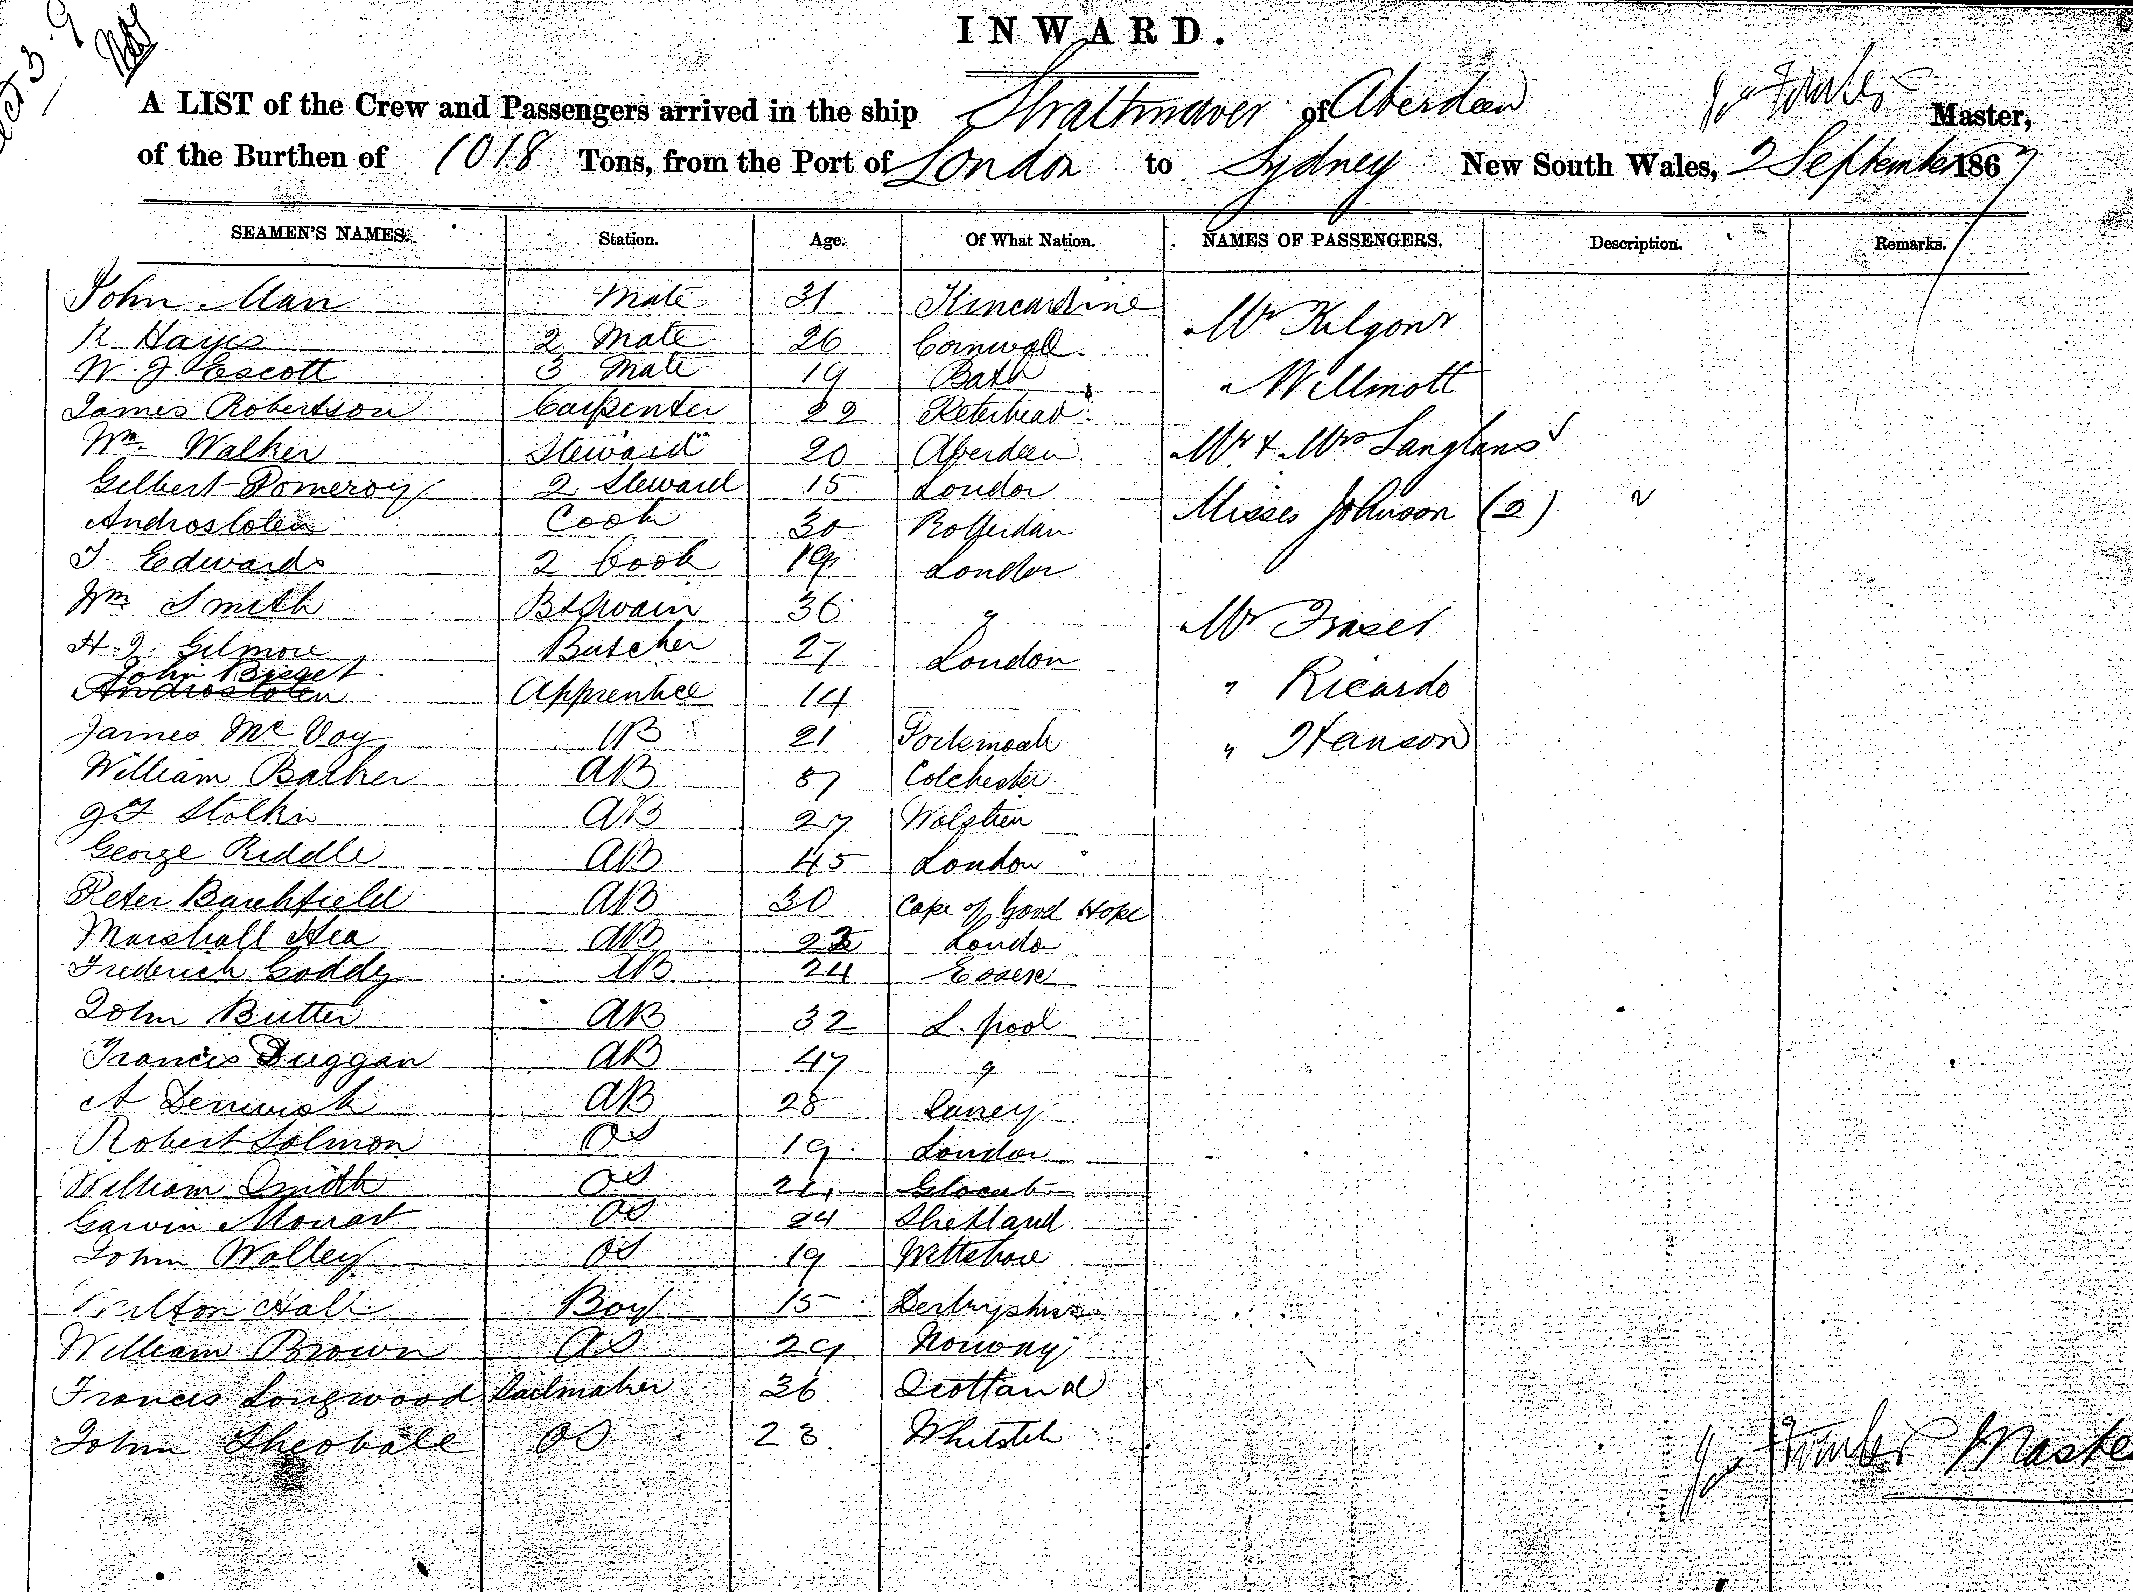 INWARD.
A LIST of the Crew and Passengers arrived in the ship Strathnaver of Aberdeen Master,
of the Burthen of 1018 Tons, from the Port of London to Sydney New South Wales, 2 September 1867
SEAMEN'S NAMES. Station. Age. Of What Nation. NAMES OF PASSENGERS. Description. Remarks.
John Man Mate 31 Kincardine
Mr Kilgour
R Hayes 2 Mate 26 Cornwall
W. J. Escott 3 Mate 19 Bath " Willmott
James Robertson Carpenter 22 Peterhead
Wm Walker Steward 20 Aberdeen Mr & Mrs Langlans
Gilbert Pomeroy 2 Steward 15 London
Misses Johnson (2)
Androstoten Cook 30 Rotterdan
T Edwards 2 Cook 19 London
Wm Smith Boswain 36 "
Mr Fraser
H. J. Gilmore Butcher 27 London
John Bisset
Androstoten Apprentice 14 " Ricardo
James Mc Voy AB 21 Portsmouth " Hanson
William Barker AB 37 Colchester
J F Stolkn AB 27 Holstien
George Riddle AB 45 London
Peter Barchfield AB 30 Cape of Good Hope
Marshall Hea AB 23 Londo
Frederick Goddy AB 24 Essex
John Butter AB 32 L. pool
Francis Duggan AB 47 "
A AB 28
Robert Solmon OS 19 London
William Smith OS 24
Garvin Mouat OS 24 Shetland
John Wolley OS 19 Wiltshire
Hall Boy 15 Derbyshire
William Brown OS 29 Norway
Francis Longwood Sailmaker 36 Scotland
John Theobald OS 23 Whitsteb
Master